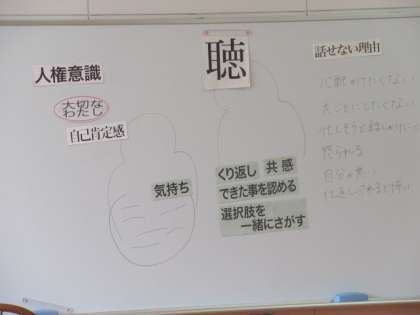 聴
人権意識
大切な
わたし
自己肯定感
気持ち
くり返し 共感
できた事を認める
選択肢を
一緒にさがす
話せない理由
心配かけたくない
大ごとにしたくない
怒られる
自分が悪い